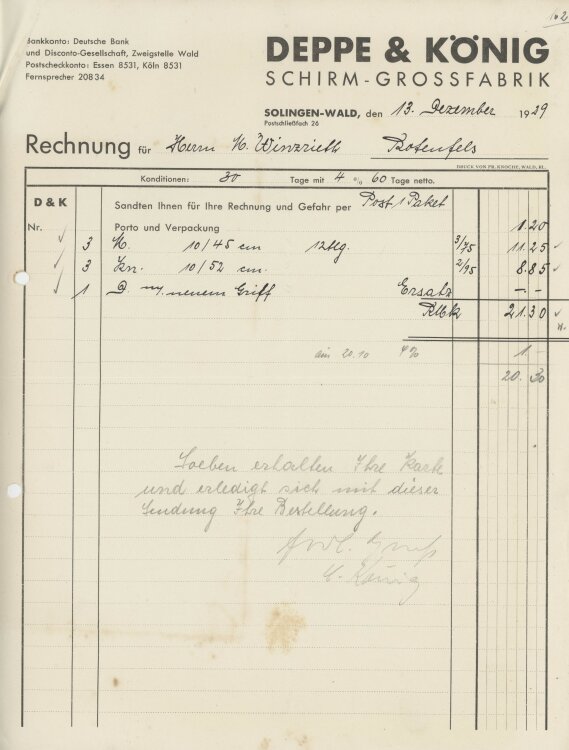 Bankkonto: Deutsche Bank
und Disconto-Gesellschaft, Zweigstelle Wald
Postscheckkonto: Essen 8531, Köln 8531
Fernsprecher 20834
DEPPE & KÖNIG
SCHIRM-GROSSFABRIK
SOLINGEN-WALD, den 13. Dezember 1929
Postschließfach 26
Rechnung für Herrn
DRUCK VON FR. KNOCHE, WALD, RL.
Konditionen: 30 Tage mit 4 % 60 Tage netto.
D & K
Nr.
Sandten Ihnen für Ihre Rechnung und Gefahr per Post 1 Paket
Porto und Verpackung 1.20
3 10/45 cm 12tlg. 3/75 11.25
3 10/52 cm. 2/95 8.85
1 neuem Griff Ersatz —.—
21.30
aus 20.10 4% 1.—
20.30
Soeben erhalten Ihre Karte
und erledigt sich mit dieser
Sendung Ihre Bestellung.
König